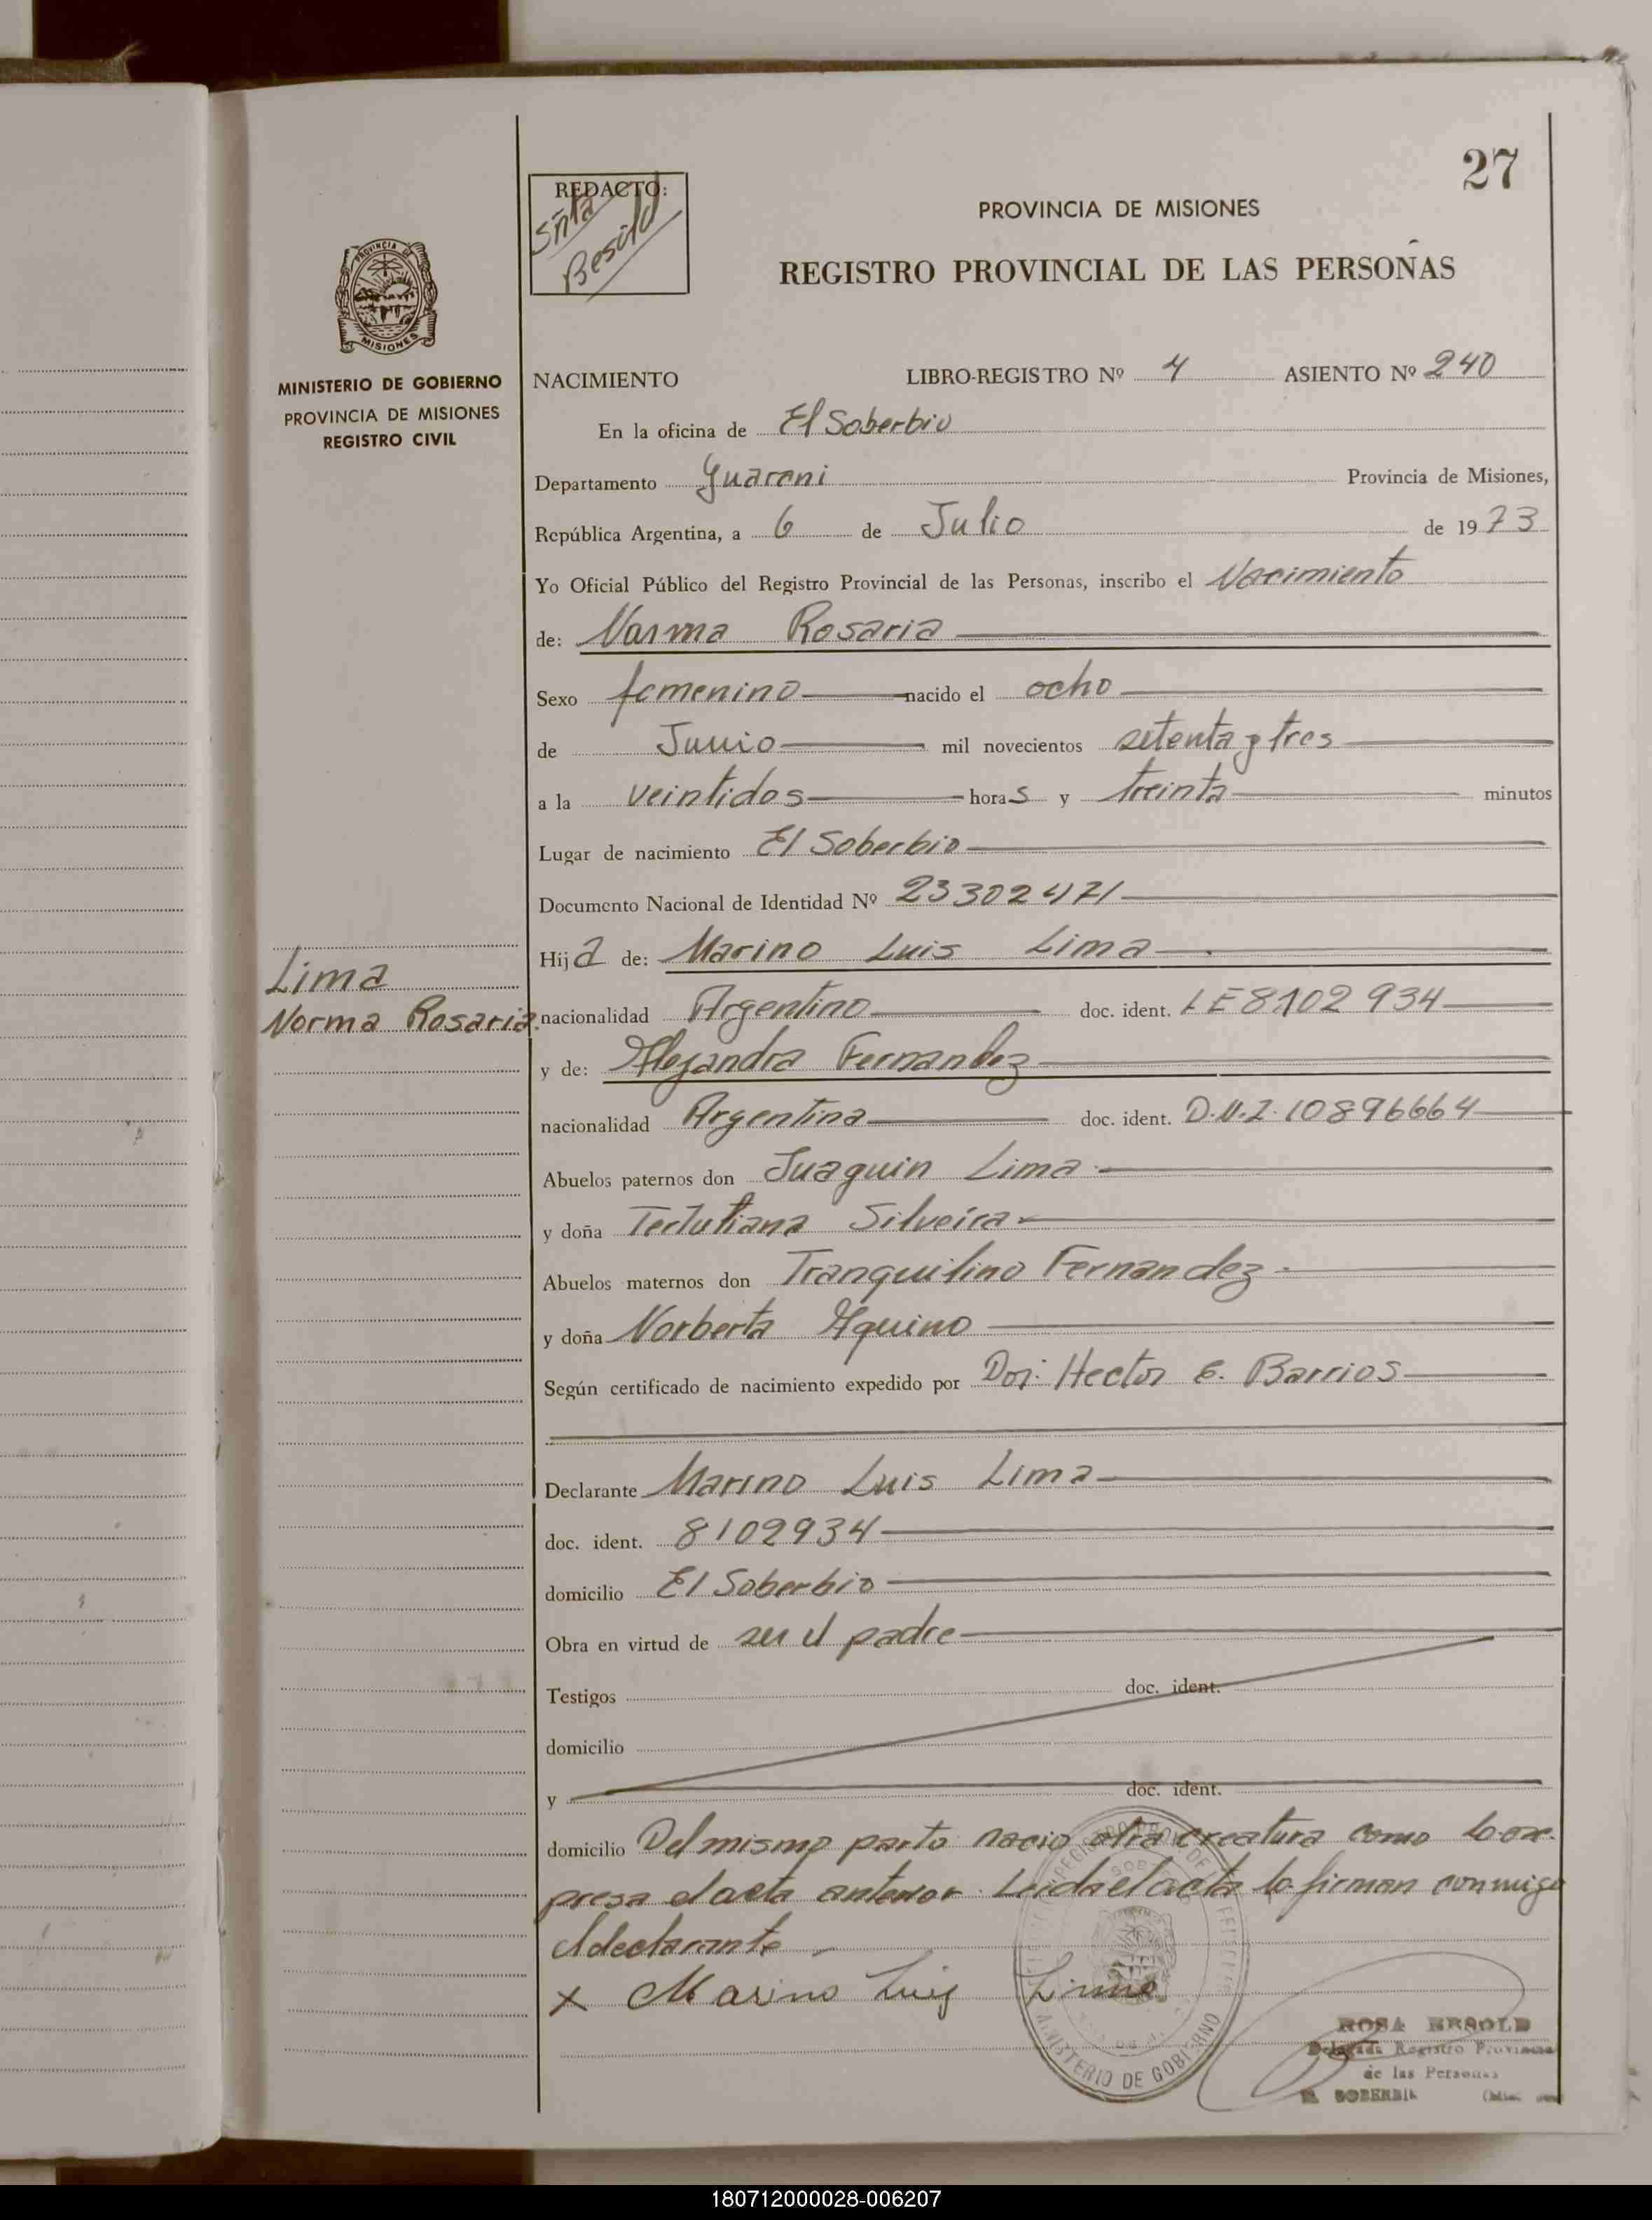 27
REDACTO:
Sñta
PROVINCIA DE MISIONES
REGISTRO PROVINCIAL DE LAS PERSONAS
PROVINCIA DE
MISIONES
MINISTERIO DE GOBIERNO
PROVINCIA DE MISIONES
REGISTRO CIVIL
NACIMIENTO LIBRO-REGISTRO Nº 4 ASIENTO Nº 240
En la oficina de El Soberbio
Departamento Guarani Provincia de Misiones,
República Argentina, a 6 de Julio de 1973
Yo Oficial Público del Registro Provincial de las Personas, inscribo el Nacimiento
de: Norma Rosaria
Sexo femenino nacido el ocho
de Junio mil novecientos setenta y tres
a la veintidos horas y treinta minutos
Lugar de nacimiento El Soberbio
Documento Nacional de Identidad Nº 23302471
Hija de: Marino Luis Lima
Lima
Norma Rosaria.
nacionalidad Argentino doc. ident. LE 8102934
y de: Alejandra Fernandez
nacionalidad Argentina doc. ident. D.N.I. 10896664
Abuelos paternos don Juaquin Lima
y doña Tertuliana Silveira
Abuelos maternos don Tranquilino Fernandez
y doña Norberta Aquino
Según certificado de nacimiento expedido por Dor: Hector E. Barrios
Declarante Marino Luis Lima
doc. ident. 8102934
domicilio El Soberbio
Obra en virtud de ser el padre
Testigos doc. ident.
domicilio
y doc. ident.
domicilio Del mismo parto nacio otra creatura como lo ex-
presa el acta anterior. Leida el acta la firman conmigo
el declarante
x Marino Luis Lima
MINISTERIO DE GOBIERNO
ROSA BESOLD
Delegada Registro Provincial
de las Personas
EL SOBERBIO
180712000028-006207